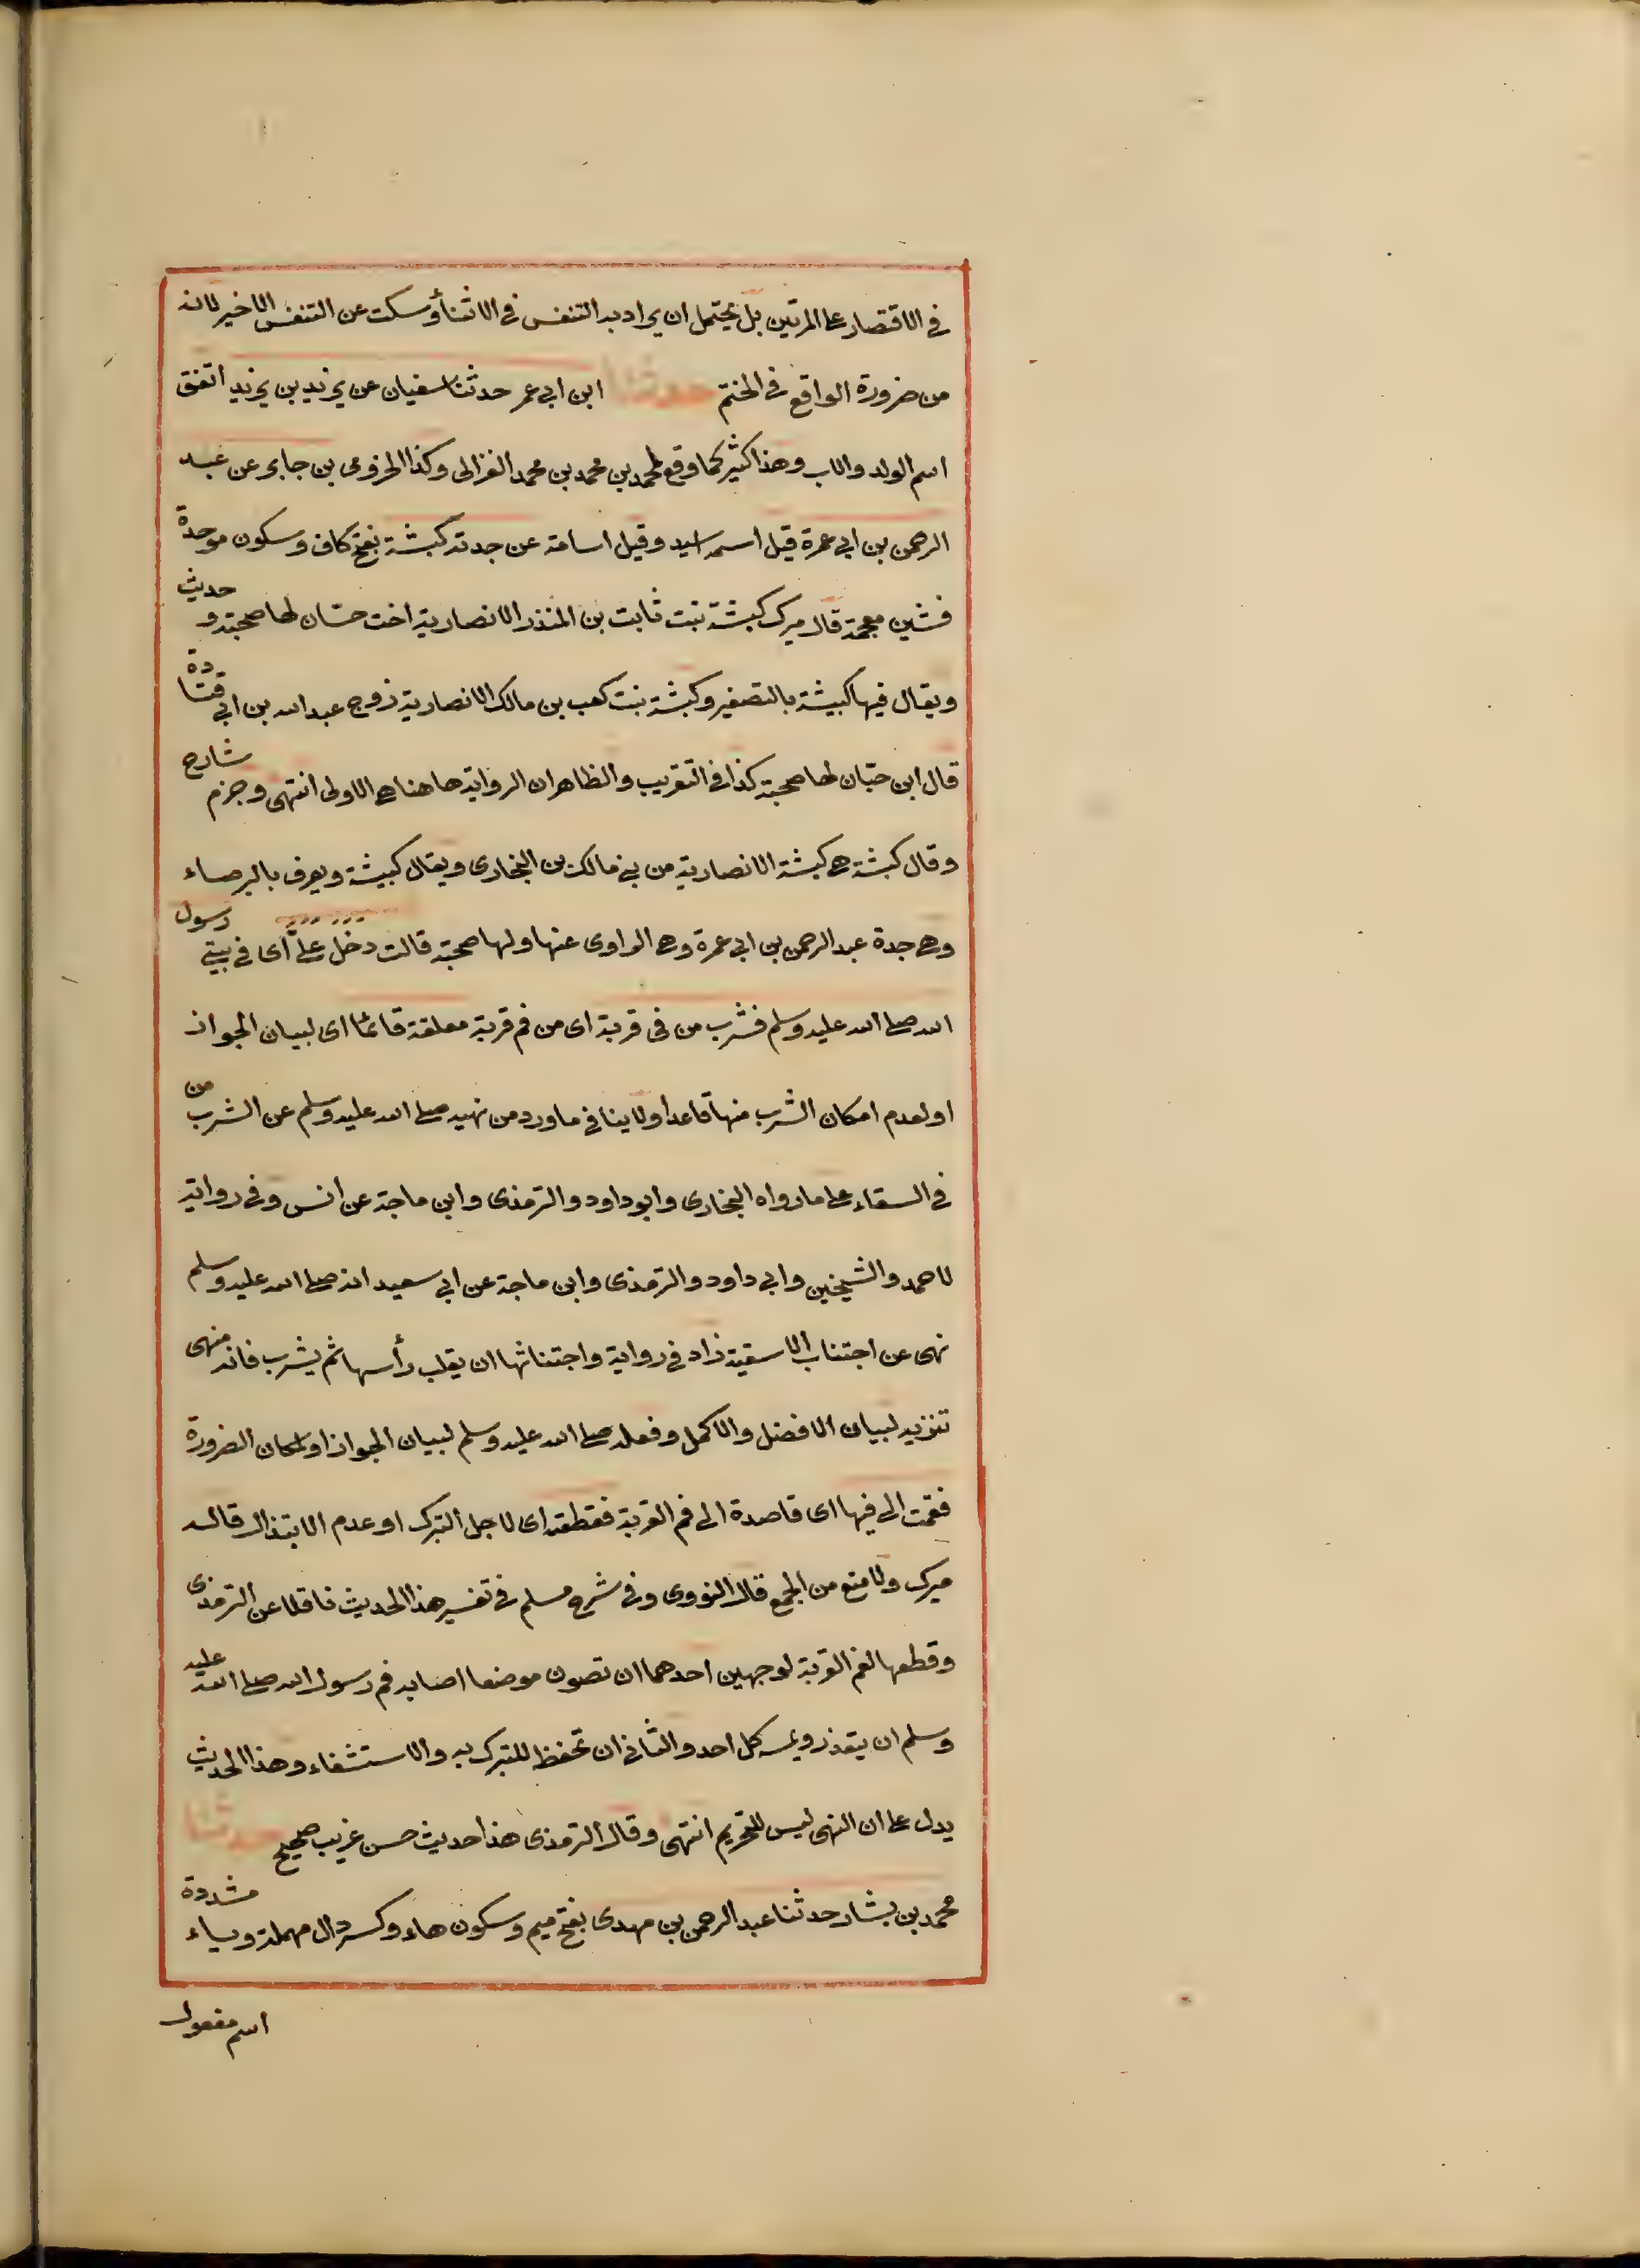 في الاقتصار على المرتين بل يحتمل ان يراد به التنفس في الاثناء وسكت عن التنفس الاخير لانه
من ضرورة الواقع في الختم حدثنا ابن ابي عمر حدثنا سفيان عن يزيد بن يزيد اتفق
اسم الولد والاب وهذا كثير كما وقع لمحمد بن محمد بن محمد الغزالى وكذا الجزرى بن جابر عن عبد
الرحمن بن ابي عمرة قيل اسمه اسيد وقيل اسامة عن جدته كبشة بفتح كاف وسكون موحدة
فشين معجمة قال ميرك كبشة بنت ثابت بن المنذر الانصارية اخت حسّان لها صحبة و حديث
ويقال فيها كبيشة بالتصغير وكبشة بنت كعب بن مالك الانصارية زوج عبد الله بن ابي قتادة
قال ابن حبّان لها صحبة كذا في التقريب والظاهر ان الرواية هاهنا هي الاولى انتهى وجزم شارح
وقال كبشة هي كبشة الانصارية من بني مالك بن النجارى ويقال كبيشة ويعرف بالبرصاء
وهي جدة عبد الرحمن بن ابي عمرة وهي الراوى عنها ولها صحبة قالت دخل عليّ اى في بيتي رسول
الله صلى الله عليه وسلم فشرب من فى قربة اى من فم قربة معلقة قائما اى لبيان الجواز
او لعدم امكان الشرب منها قاعدا ولا ينافي ما ورد من نهيه صلى الله عليه وسلم عن الشرب من
في السقاء على ما رواه البخارى وابو داود والترمذى وابن ماجة عن انس وفي رواية
لاحمد والشيخين وابي داود والترمذى وابن ماجة عن ابي سعيد انه صلى الله عليه وسلم
نهى عن اجتناب الاسقية زاد في رواية واجتناثها ان يقلب رأسها ثم يشرب فانه منهى
تنزيه لبيان الافضل والاكمل وفعله صلى الله عليه وسلم لبيان الجواز او لمكان الضرورة
فقمت الى فيها اى قاصدة الى فم القربة فقطعته اى لاجل التبرك او عدم الابتذال قال
ميرك ولا منع من الجمع قال النووى وفي شرح مسلم في تفسير هذا الحديث ناقلا عن الترمذى
وقطعها لفم القربة لوجهين احدهما ان تصون موضعا اصابه فم رسول الله صلى الله عليه
وسلم ان يتقذر ويمسه كل احد والثاني ان تحفظ للتبرك به والاستشفاء وهذا الحديث
يدل على ان النهى ليس للتحريم انتهى وقال الترمذى هذا حديث حسن غريب صحيح حدثنا
محمد بن بشار حدثنا عبد الرحمن بن مهدى بفتح ميم وسكون هاء وكسر دال مهملة وياء مشددة
اسم مفعول